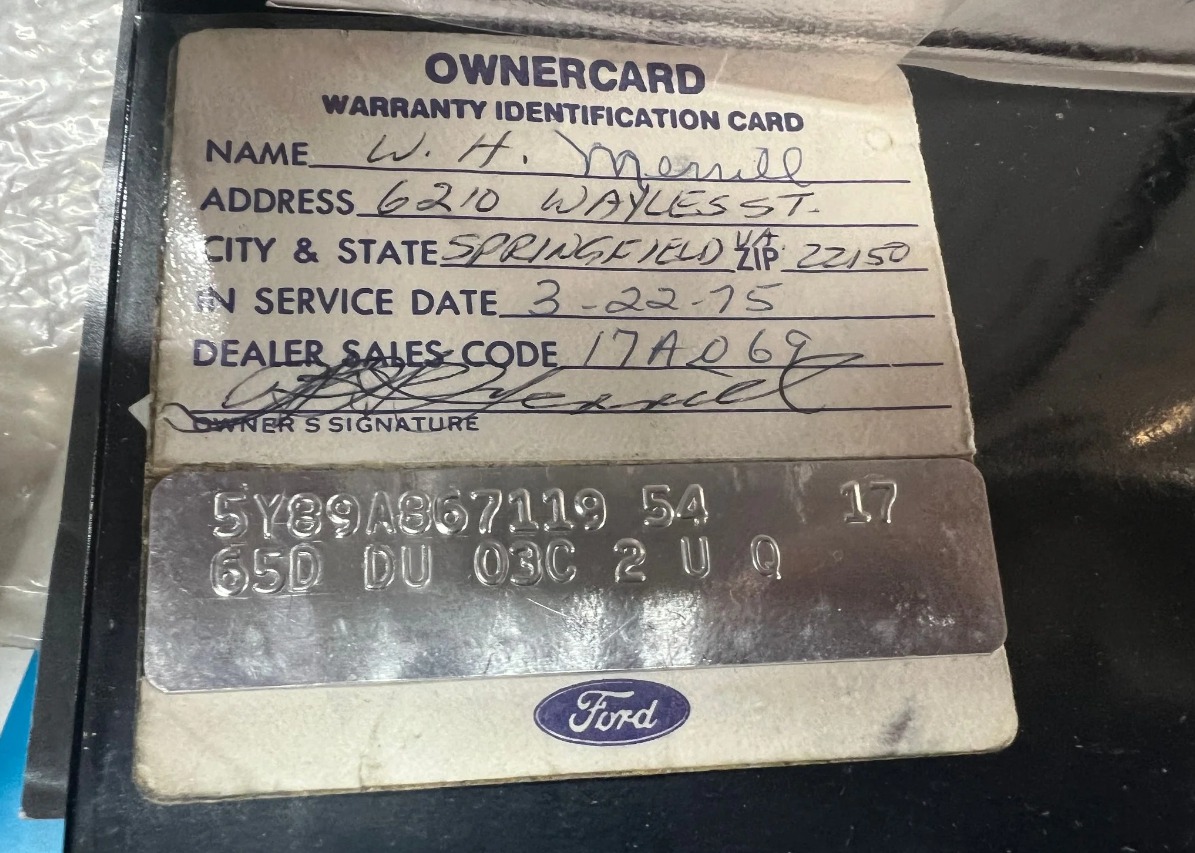 OWNERCARD
WARRANTY IDENTIFICATION CARD
NAME W. H. Merrill
ADDRESS 6210 WAYLES ST.
CITY & STATE SPRINGFIELD VA. ZIP 22150
IN SERVICE DATE 3-22-75
DEALER SALES CODE 17A069
OWNER'S SIGNATURE
5Y89A867119 54 17
65D DU 03C 2 U Q
Ford